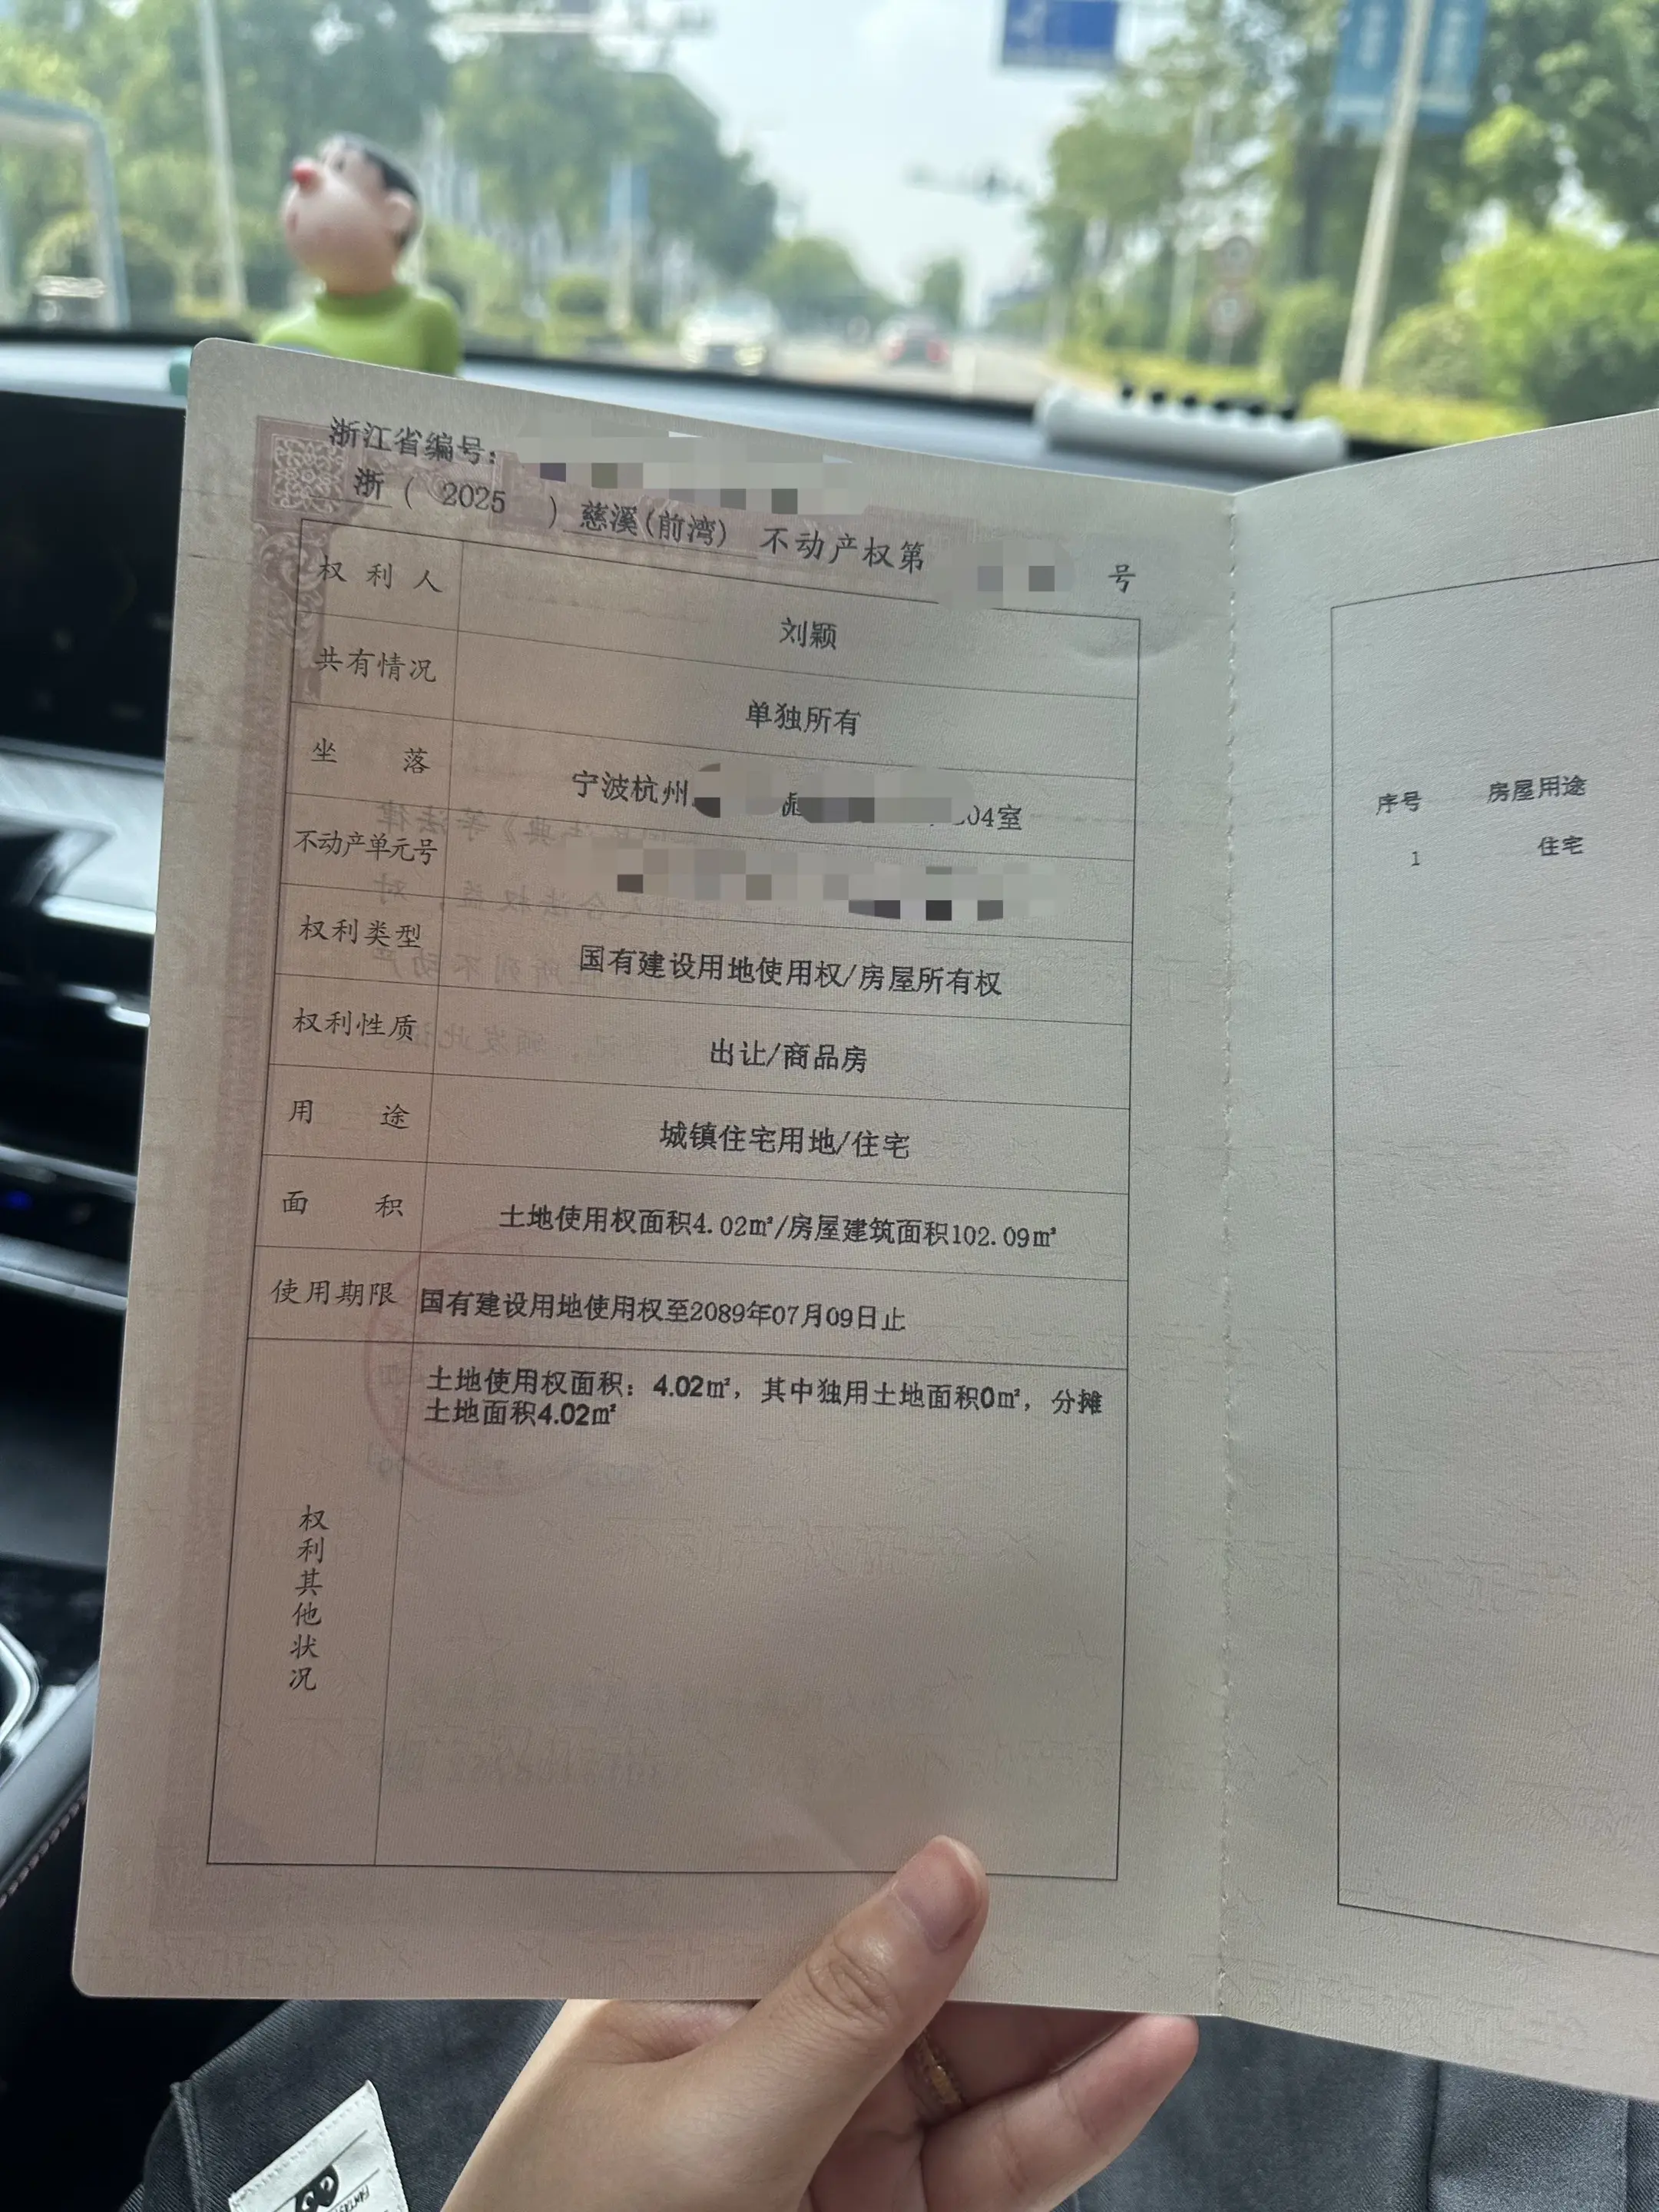 浙江省编号：
浙（2025）慈溪(前湾) 不动产权第 号
权利人 刘颖
共有情况 单独所有
坐落 宁波杭州 04室
不动产单元号
权利类型 国有建设用地使用权/房屋所有权
权利性质 出让/商品房
用途 城镇住宅用地/住宅
面积 土地使用权面积4.02㎡/房屋建筑面积102.09㎡
使用期限 国有建设用地使用权至2089年07月09日止
土地使用权面积：4.02㎡，其中独用土地面积0㎡，分摊
土地面积4.02㎡
权利其他状况
序号 房屋用途
1 住宅